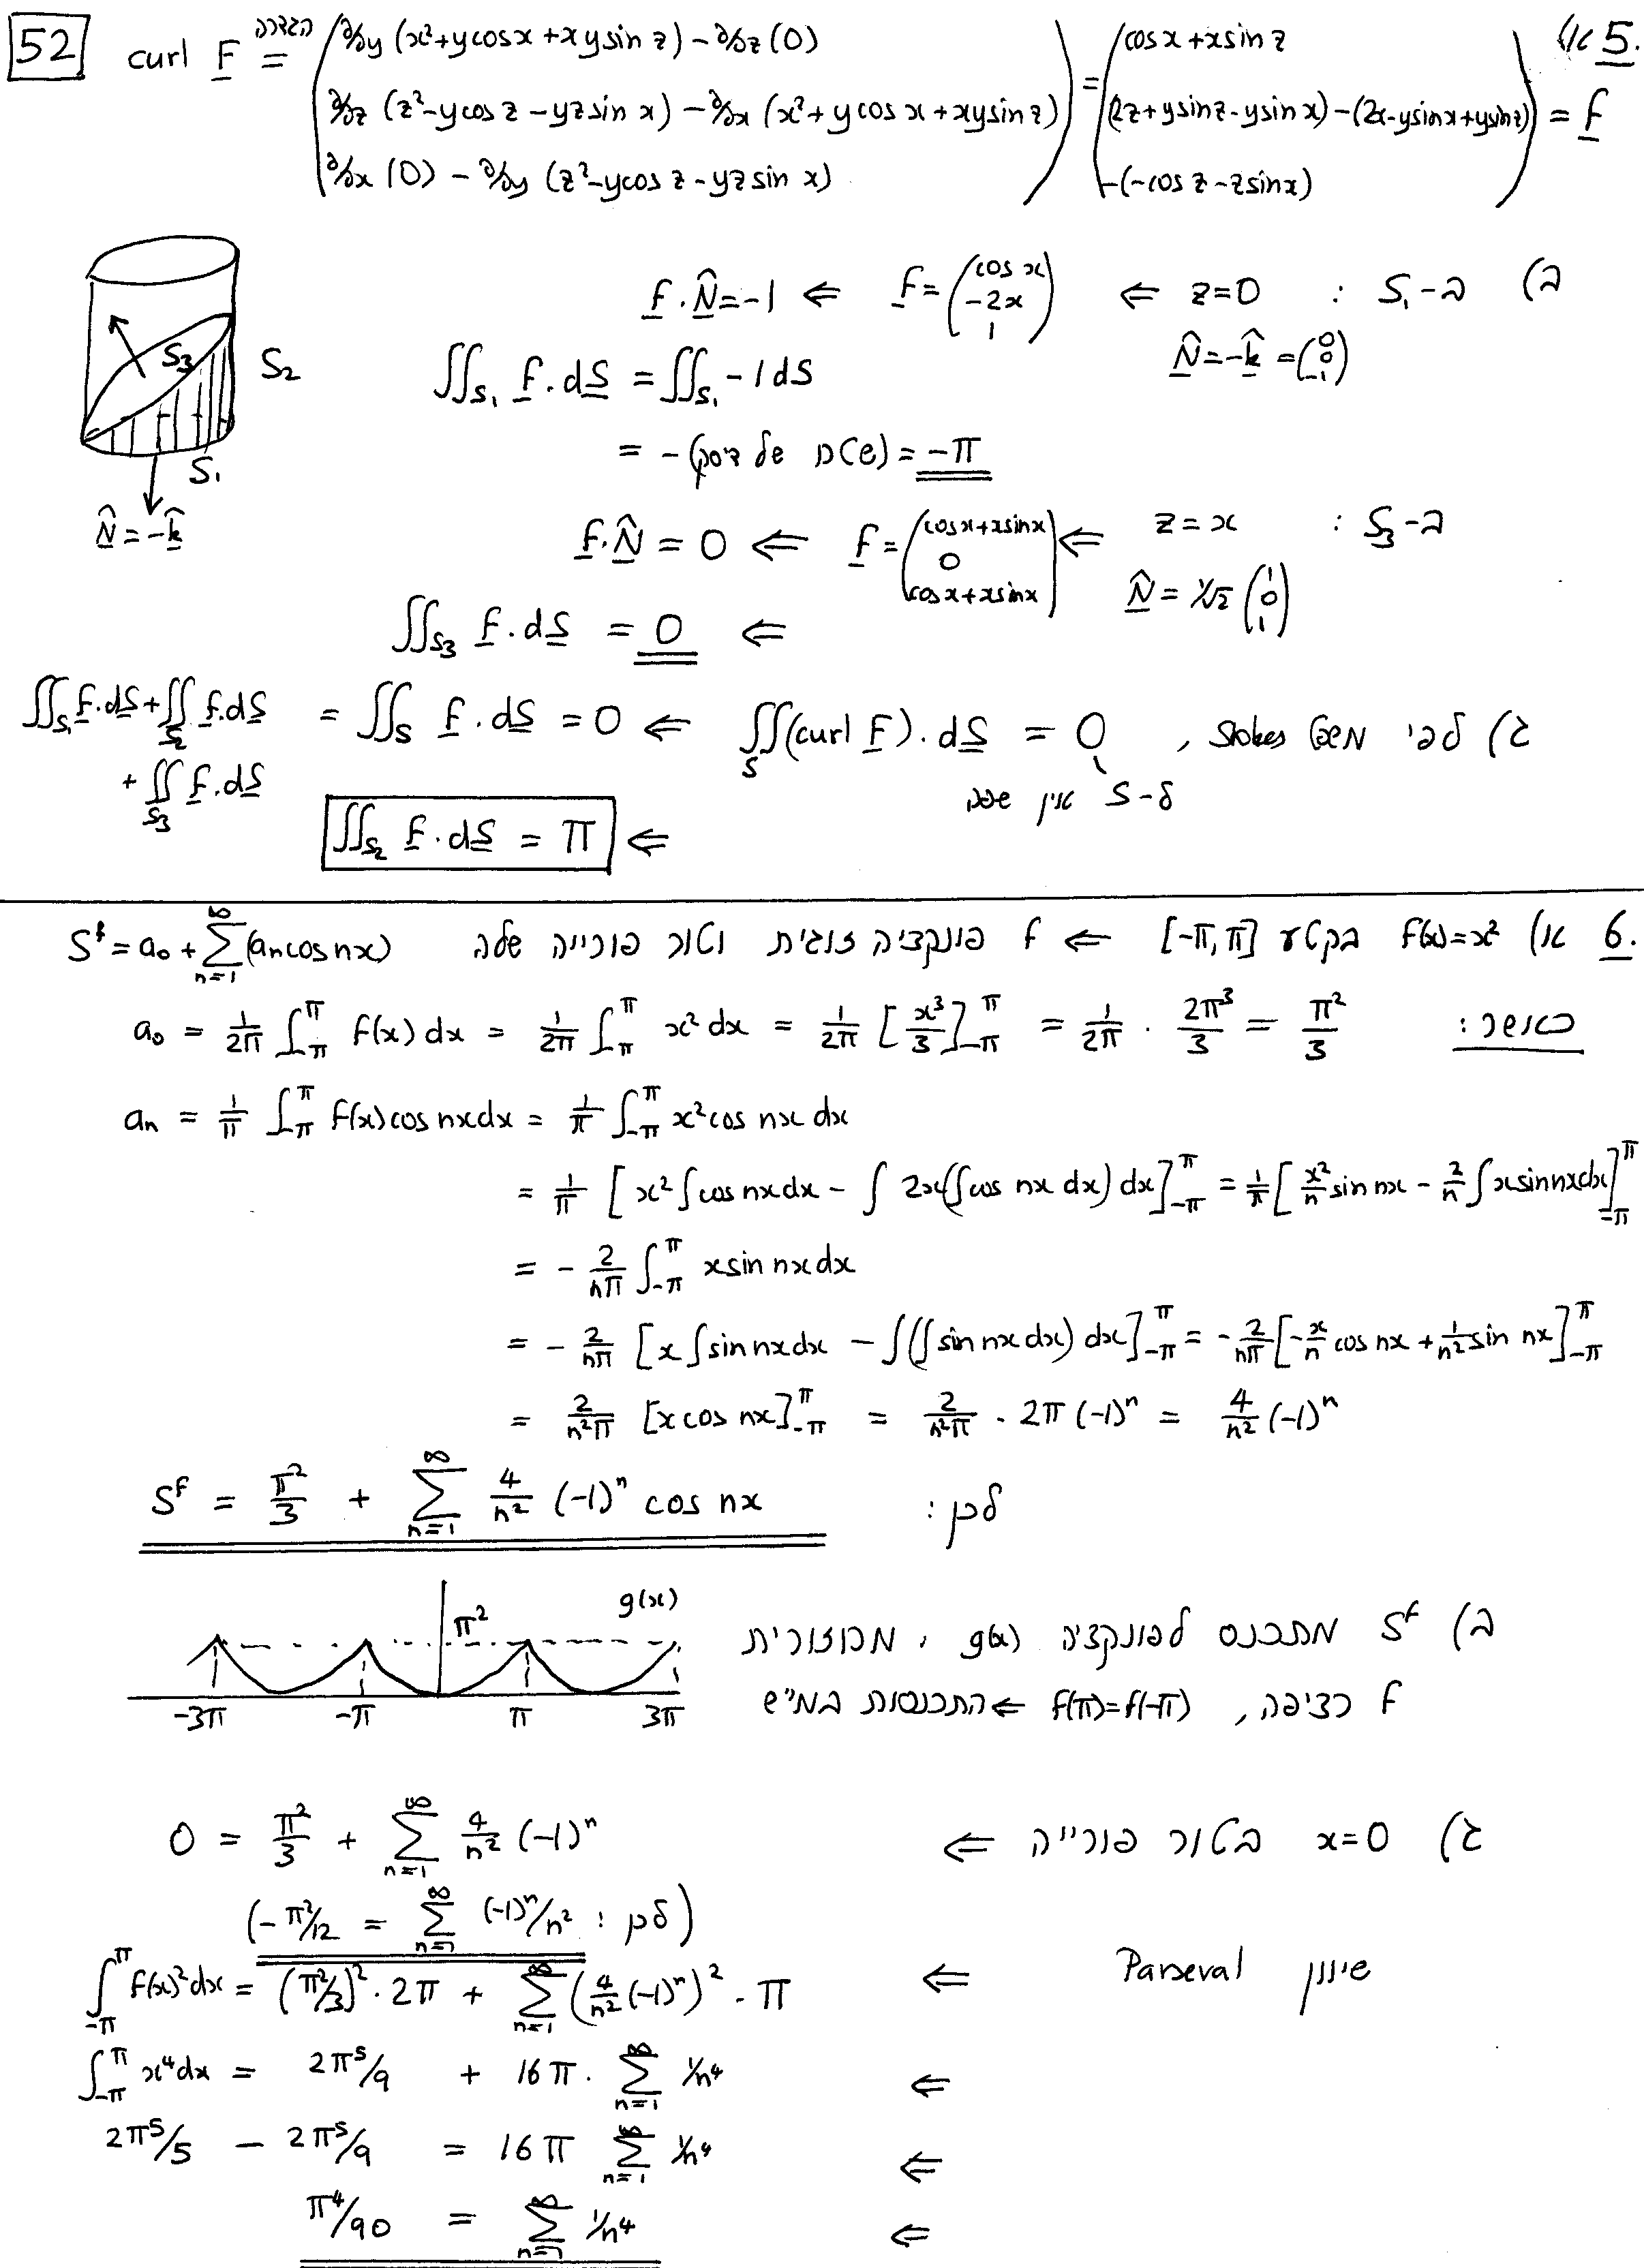 52
5. א)
curl F = (הגדרה) ( ∂/∂y (x²+ycosx+xysin z) - ∂/∂z (0) ) = ( cosx+xsin z ) = f
( ∂/∂z (z²-ycos z -yzsin x) - ∂/∂x (x²+ycos x+xysin z) ) ( (2z+ysinz-ysinx)-(2x-ysinx+ysinz) )
( ∂/∂x (0) - ∂/∂y (z²-ycos z -yzsin x) ) ( -(-cos z -zsinx) )
ב) ב-S₁ : z=0 ⇐ f = (cos x, -2x, 1) ⇐ f·N̂=-1
N̂=-k̂ = (0, 0, -1)
∬S₁ f·dS = ∬S₁ -1dS
= -(שטח של דיסק) = -π
S₃ S₂
S₁
N̂=-k̂
ב-S₃ : z=x ⇐ f = (cosx+xsinx, 0, cosx+xsinx) ⇐ f·N̂=0
N̂ = 1/√2 (1, 0, 1)
⇐ ∬S₃ f·dS = 0
ג) לפי משפט Stokes, ∬S (curl F)·dS = 0 ⇐ ∬S f·dS = 0 = ∬S₁ f·dS + ∬S₂ f·dS
+ ∬S₃ f·dS
ל-S אין שפה
⇐ ∬S₂ f·dS = π
6. א) f(x)=x² בקטע [-π,π] ⇐ f פונקציה זוגית וטור פורייה שלה S^f = a₀ + Σ_{n=1}^∞ (aₙcos nx)
כאשר: a₀ = 1/2π ∫_{-π}^{π} f(x)dx = 1/2π ∫_{-π}^{π} x²dx = 1/2π [x³/3]_{-π}^{π} = 1/2π · 2π³/3 = π²/3
aₙ = 1/π ∫_{-π}^{π} f(x)cos nxdx = 1/π ∫_{-π}^{π} x²cos nx dx
= 1/π [x²∫cos nxdx - ∫ 2x(∫cos nx dx) dx]_{-π}^{π} = 1/π [x²/n sin nx - 2/n ∫xsin nxdx]_{-π}^{π}
= - 2/nπ ∫_{-π}^{π} xsin nxdx
= - 2/nπ [x∫sin nxdx - ∫(∫sin nx dx) dx]_{-π}^{π} = -2/nπ [-x/n cos nx + 1/n² sin nx]_{-π}^{π}
= 2/n²π [xcos nx]_{-π}^{π} = 2/n²π · 2π(-1)ⁿ = 4/n² (-1)ⁿ
לכן: S^f = π²/3 + Σ_{n=1}^∞ 4/n² (-1)ⁿ cos nx
ב) S^f מתכנס לפונקציה g(x), מחזורית
f רציפה, f(π)=f(-π) ⇒ התכנסות במ"ש
π² g(x)
-3π -π π 3π
ג) x=0 בטור פורייה ⇐ 0 = π²/3 + Σ_{n=1}^∞ 4/n² (-1)ⁿ
(לכן: -π²/12 = Σ_{n=1}^∞ (-1)ⁿ/n²)
שיוון Parseval ⇐ ∫_{-π}^{π} f(x)²dx = (π²/3)²·2π + Σ_{n=1}^∞ (4/n² (-1)ⁿ)²·π
⇐ ∫_{-π}^{π} x⁴dx = 2π⁵/9 + 16π· Σ_{n=1}^∞ 1/n⁴
⇐ 2π⁵/5 - 2π⁵/9 = 16π Σ_{n=1}^∞ 1/n⁴
⇐ π⁴/90 = Σ_{n=1}^∞ 1/n⁴